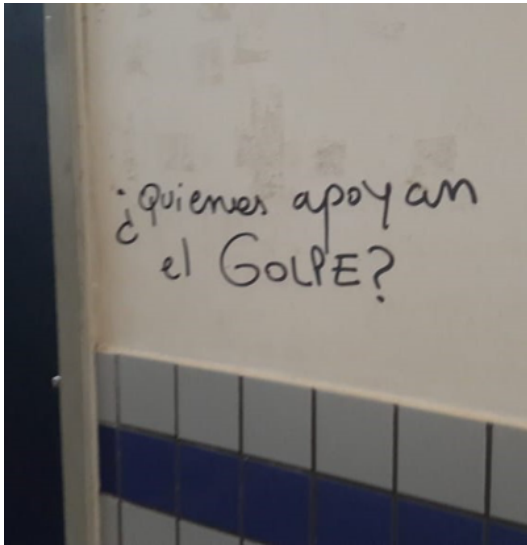 ¿Quienes apoyan
el GOLPE?